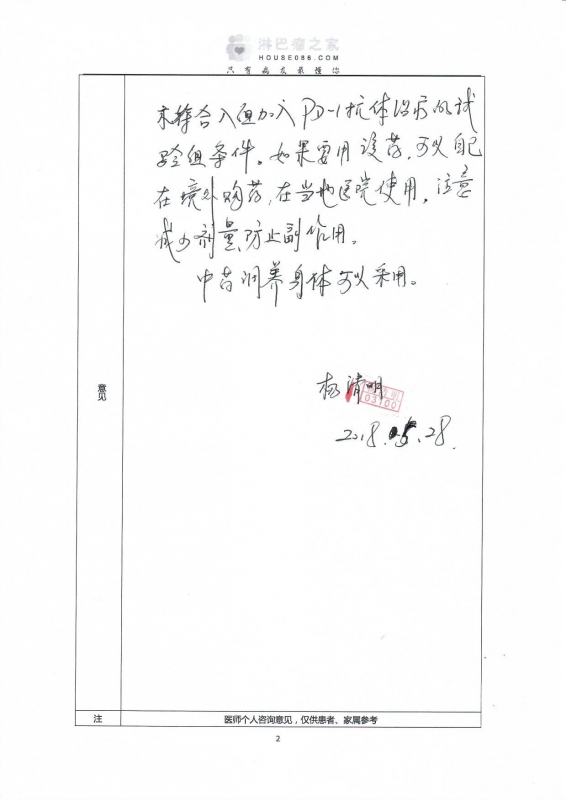 淋巴瘤之家
HOUSE086.COM
只有病友最懂你
未符合入组加入PD-1抗体治疗的试
验组条件。如果要用该药,可以自己
在境外购药,在当地医院使用,注意
减少剂量,防止副作用。
中药调养身体可以采用。
意见
杨清明
03100
2018.5.28.
注
医师个人咨询意见,仅供患者、家属参考
2